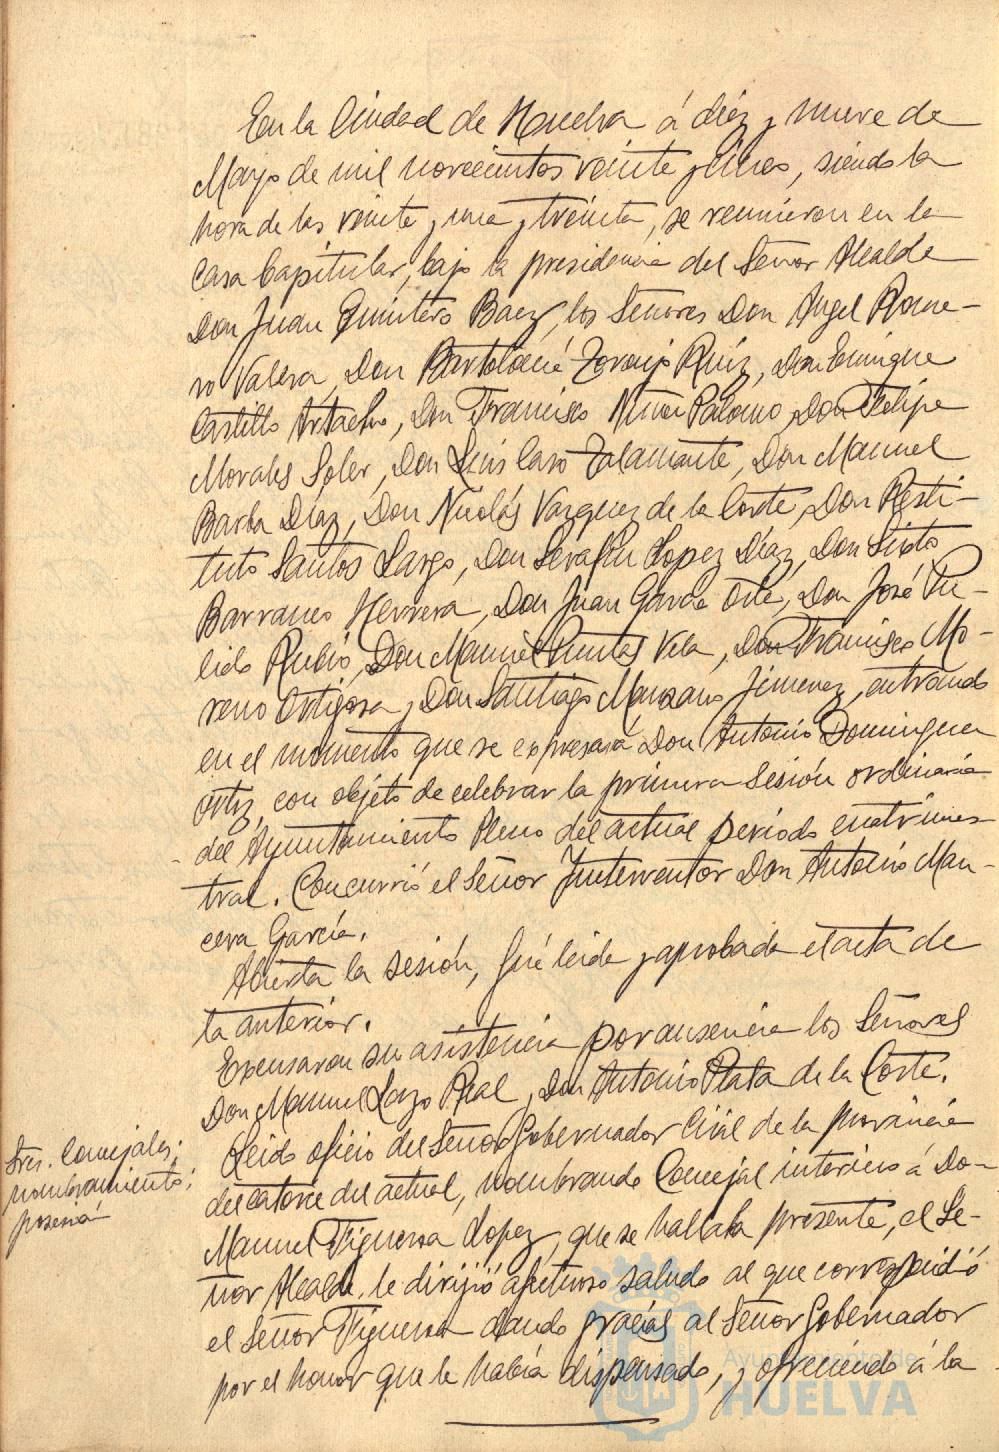 En la Ciudad de Huelva á diez y nueve de
Mayo de mil novecientos veinte y cinco, siendo la
hora de las veinte y una y treinta, se reunieron en la
Casa Capitular, bajo la presidencia del Señor Alcalde
Don Juan Quintero Baez, los Señores Don Angel Rome-
ro Valera, Don Bartolomé Toronjo Ruíz, Don Enrique
Castillo Artacho, Don Francisco Niño Palomo, Don Felipe
Morales Soler, Don Luis Caso Talamante, Don Manuel
Barba Díaz, Don Nicolás Vazquez de la Corte, Don Resti-
tuto Santos Largo, Don Serafín Lopez Díaz, Don Sixto
Barranco Herrera, Don Juan García Orta, Don José Pu-
lido Rubio, Don Manuel Puntas Vela, Don Francisco Mo-
reno Ortigosa y Don Santiago Manzano Jimenez, entrando
en el momento que se expresará Don Antonio Dominguez
Ortiz, con objeto de celebrar la primera sesión ordinaria
del Ayuntamiento Pleno del actual período cuatrimes-
tral. Concurrió el Señor Interventor Don Antonio Man-
cera García.
Abierta la sesión, fué leida y aprobada el acta de
la anterior.
Excusaron su asistencia por ausencia los Señores
Don Manuel Lazo Real y Don Antonio Plata de la Corte.
Sres. Concejales;
nombramiento;
posesión
Leido oficio del Señor Gobernador Civil de la provincia
del catorce del actual, nombrando Concejal interino á Don
Manuel Figueroa Lopez, que se hallaba presente, el Se-
ñor Alcalde, le dirijió afectuoso saludo al que correspondió
el Señor Figueroa dando gracias al Señor Gobernador
por el honor que le había dispensado, y ofreciendo á la
Ayuntamiento de
HUELVA